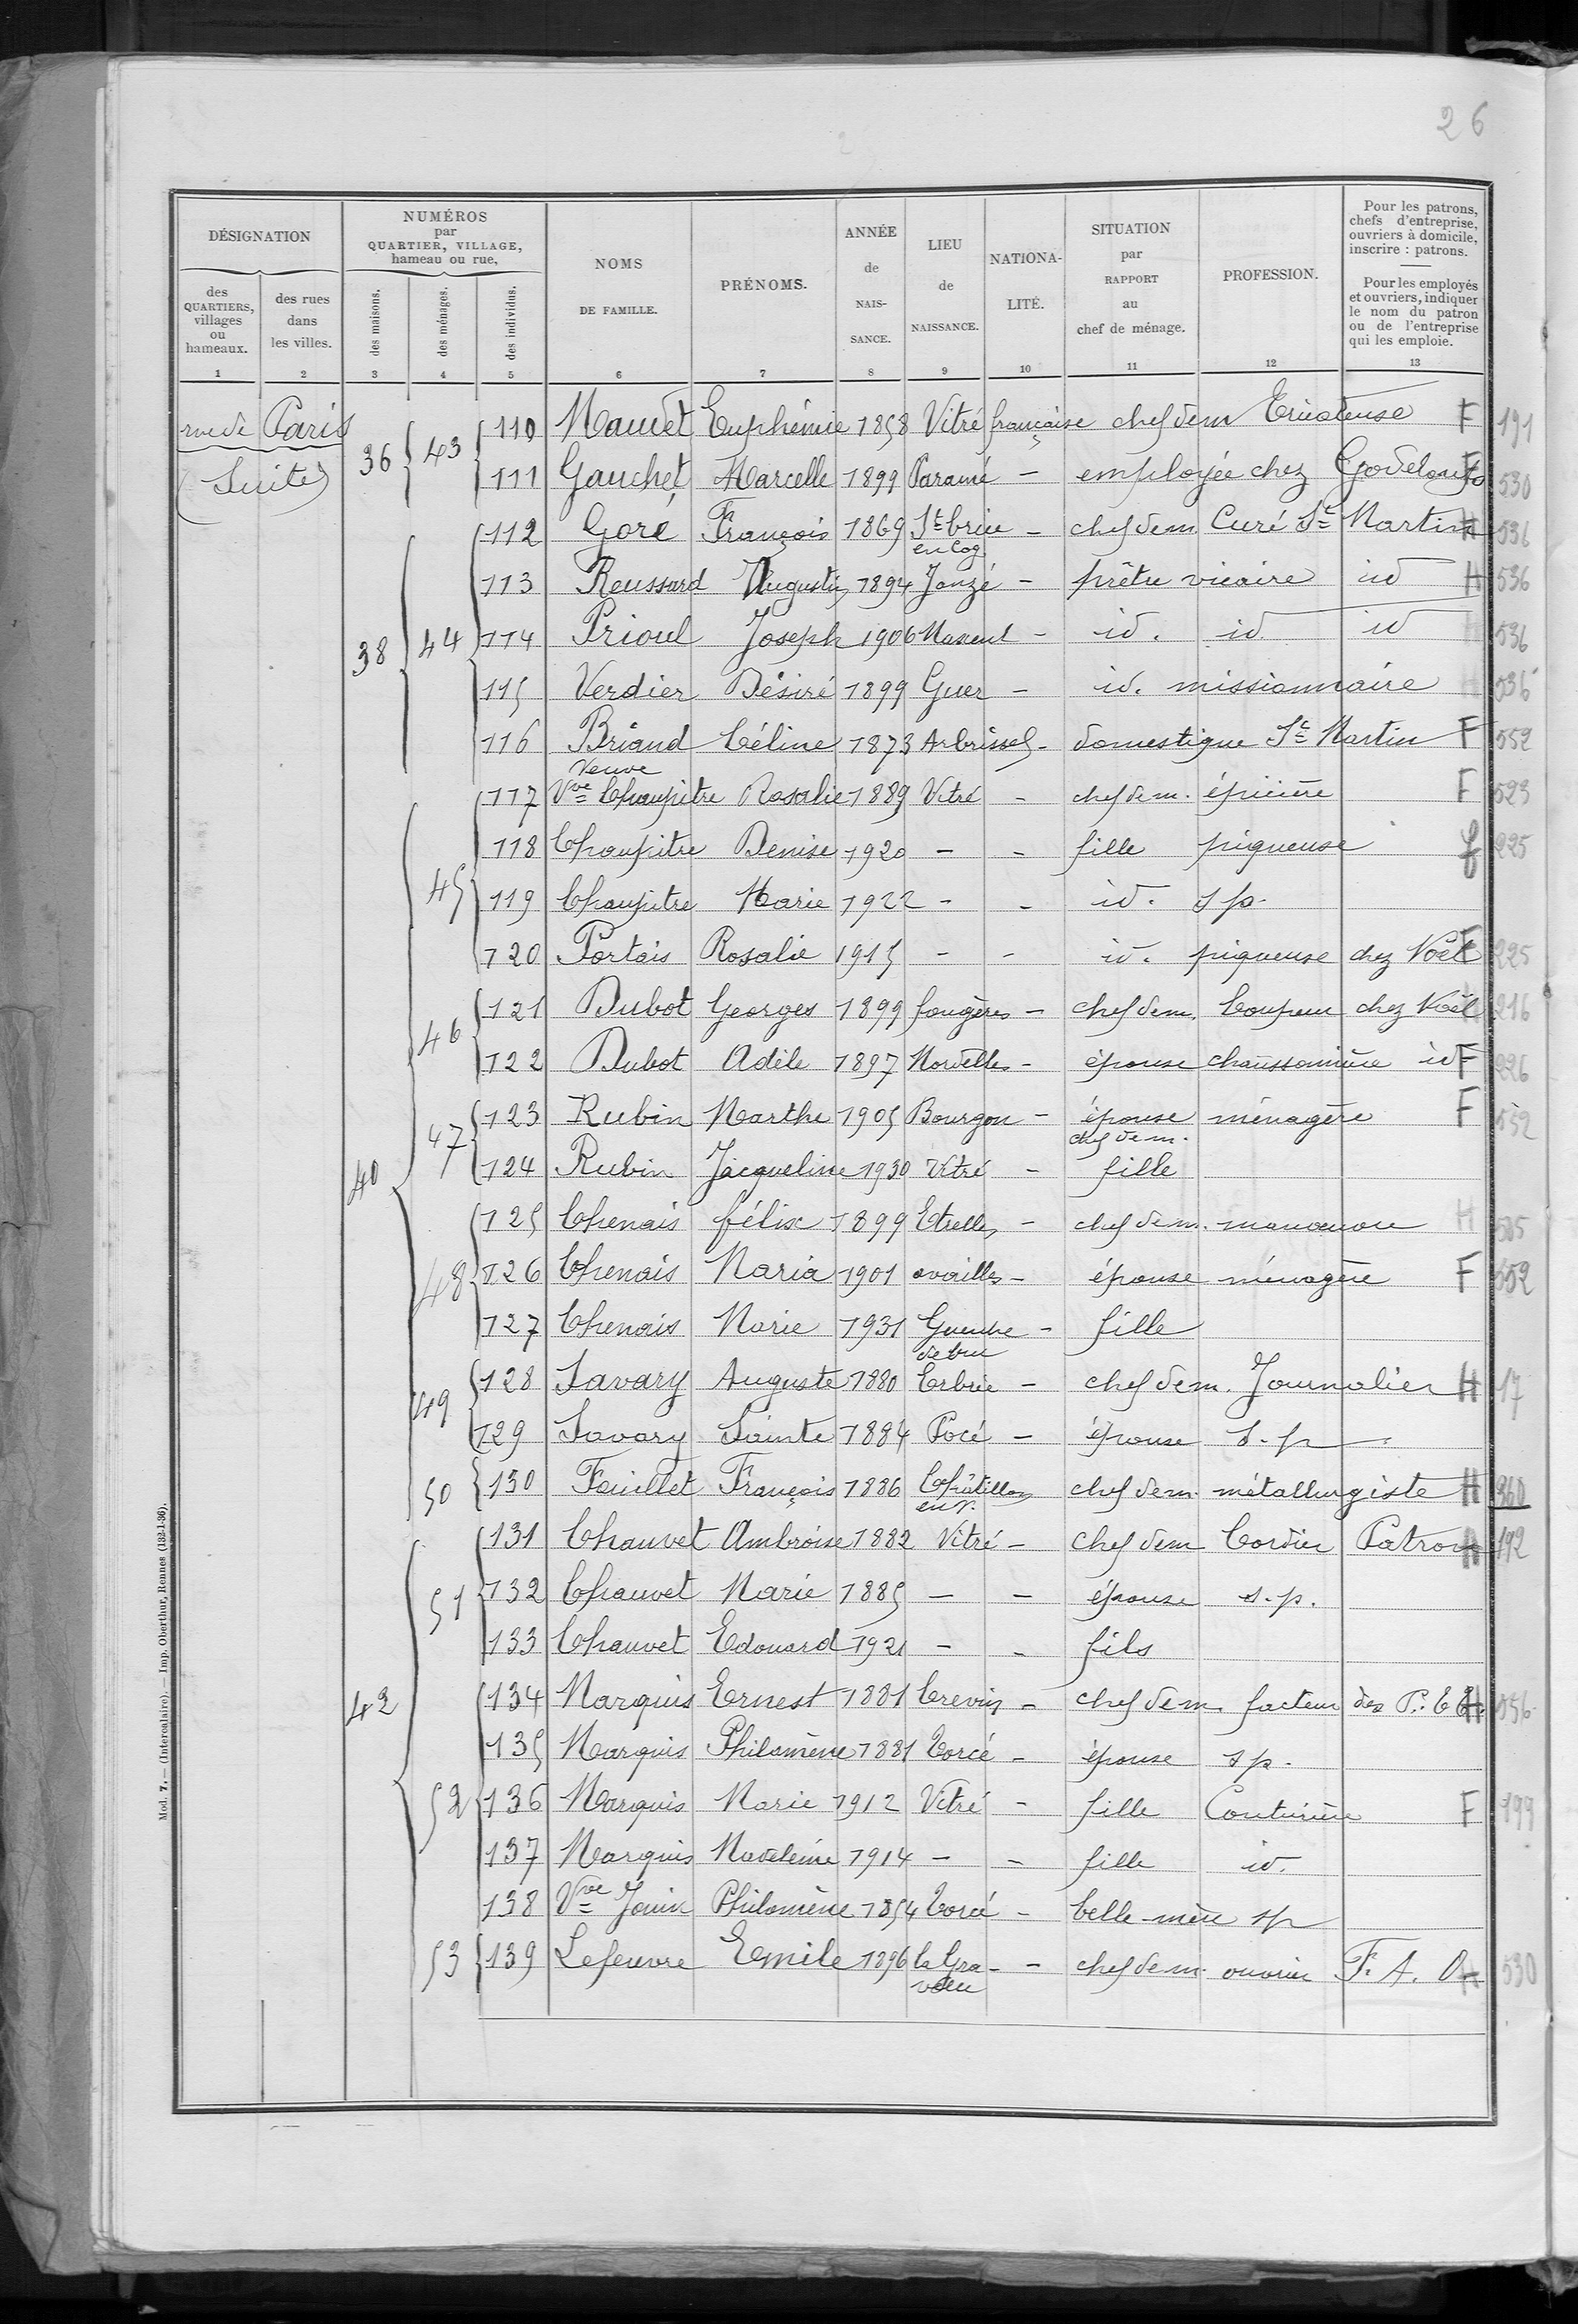 26
DÉSIGNATION
NUMÉROS
par
QUARTIER, VILLAGE,
hameau ou rue,
NOMS
DE FAMILLE.
PRÉNOMS.
ANNÉE
de
NAIS-
SANCE.
LIEU
de
NAISSANCE.
NATIONA-
LITÉ.
SITUATION
par
RAPPORT
au
chef de ménage.
PROFESSION.
Pour les patrons,
chefs d'entreprise,
ouvriers à domicile,
inscrire : patrons.
Pour les employés
et ouvriers, indiquer
le nom du patron
ou de l'entreprise
qui les emploie.
des
QUARTIERS,
villages
ou
hameaux.
des rues
dans
les villes.
des maisons.
des ménages.
des individus.
1 2 3 4 5 6 7 8 9 10 11 12 13
rue de Paris 36 43 110 Maudet Euphémie 1858 Vitré française chef dem Tricoteuse F 191
(Suite) 111 Gauchet Marcelle 1899 Paramé - employée chez F 530
38 44 112 Goré François 1869 St brice en Cog. - chef dem Curé St Martin H 536
113 Reussard Augustin 1894 Janzé - prêtre vicaire id H 536
114 Prioul Joseph 1906 Maxent - id. id id H 536
115 Verdier Désiré 1899 Guer - id. missionnaire H 536
116 Briand Céline 1873 Arbrissel - domestique St Martin F 552
Veuve
40 45 117 Vve Choupitre Rosalie 1889 Vitré - chef dem. épicière F 523
118 Choupitre Denise 1920 - - fille piqueuse f 225
119 Choupitre Marie 1922 - - id. sp.
120 Portais Rosalie 1915 - - id. piqueuse chez Noël F 225
46 121 Dubot Georges 1899 fougères - chef dem. Coupeur chez Noël H 216
122 Dubot Adèle 1897 - épouse chaussonnière id F 226
47 123 Rubin Marthe 1905 Bourgon - épouse chef dem. ménagère F 552
124 Rubin Jacqueline 1930 Vitré - fille
48 125 Chenais félix 1899 Etrelles - chef dem. manœuvre H 505
126 Chenais Maria 1901 availles - épouse ménagère F 552
127 Chenais Marie 1931 - fille
49 128 Savary Auguste 1880 Erbrée - chef dem. Journalier H 17
129 Savary Sainte 1884 Pocé - épouse s.p.
50 130 Feuillet François 1886 Châtillon en V. - chef dem. métallurgiste H 360
42 51 131 Chauvet Ambroise 1882 Vitré - chef dem Cordier Patron H 192
132 Chauvet Marie 1885 - - épouse s.p.
133 Chauvet Edouard 1921 - - fils
52 134 Marquis Ernest 1881 Crevin - chef dem. facteur des P.T.T. H 556
135 Marquis Philomène 1881 Torcé - épouse sp.
136 Marquis Marie 1912 Vitré - fille Couturière F 199
137 Marquis Madeleine 1914 - - fille id.
138 Vve Jouin Philomène 1854 Torcé - belle-mère sp
53 139 Lefeuvre Emile 1896 la Gravelle - - chef dem. ouvrier F. A. O H 530
Mod. 7. — (Intercalaire). — Imp. Oberthur, Rennes (132-1-36).